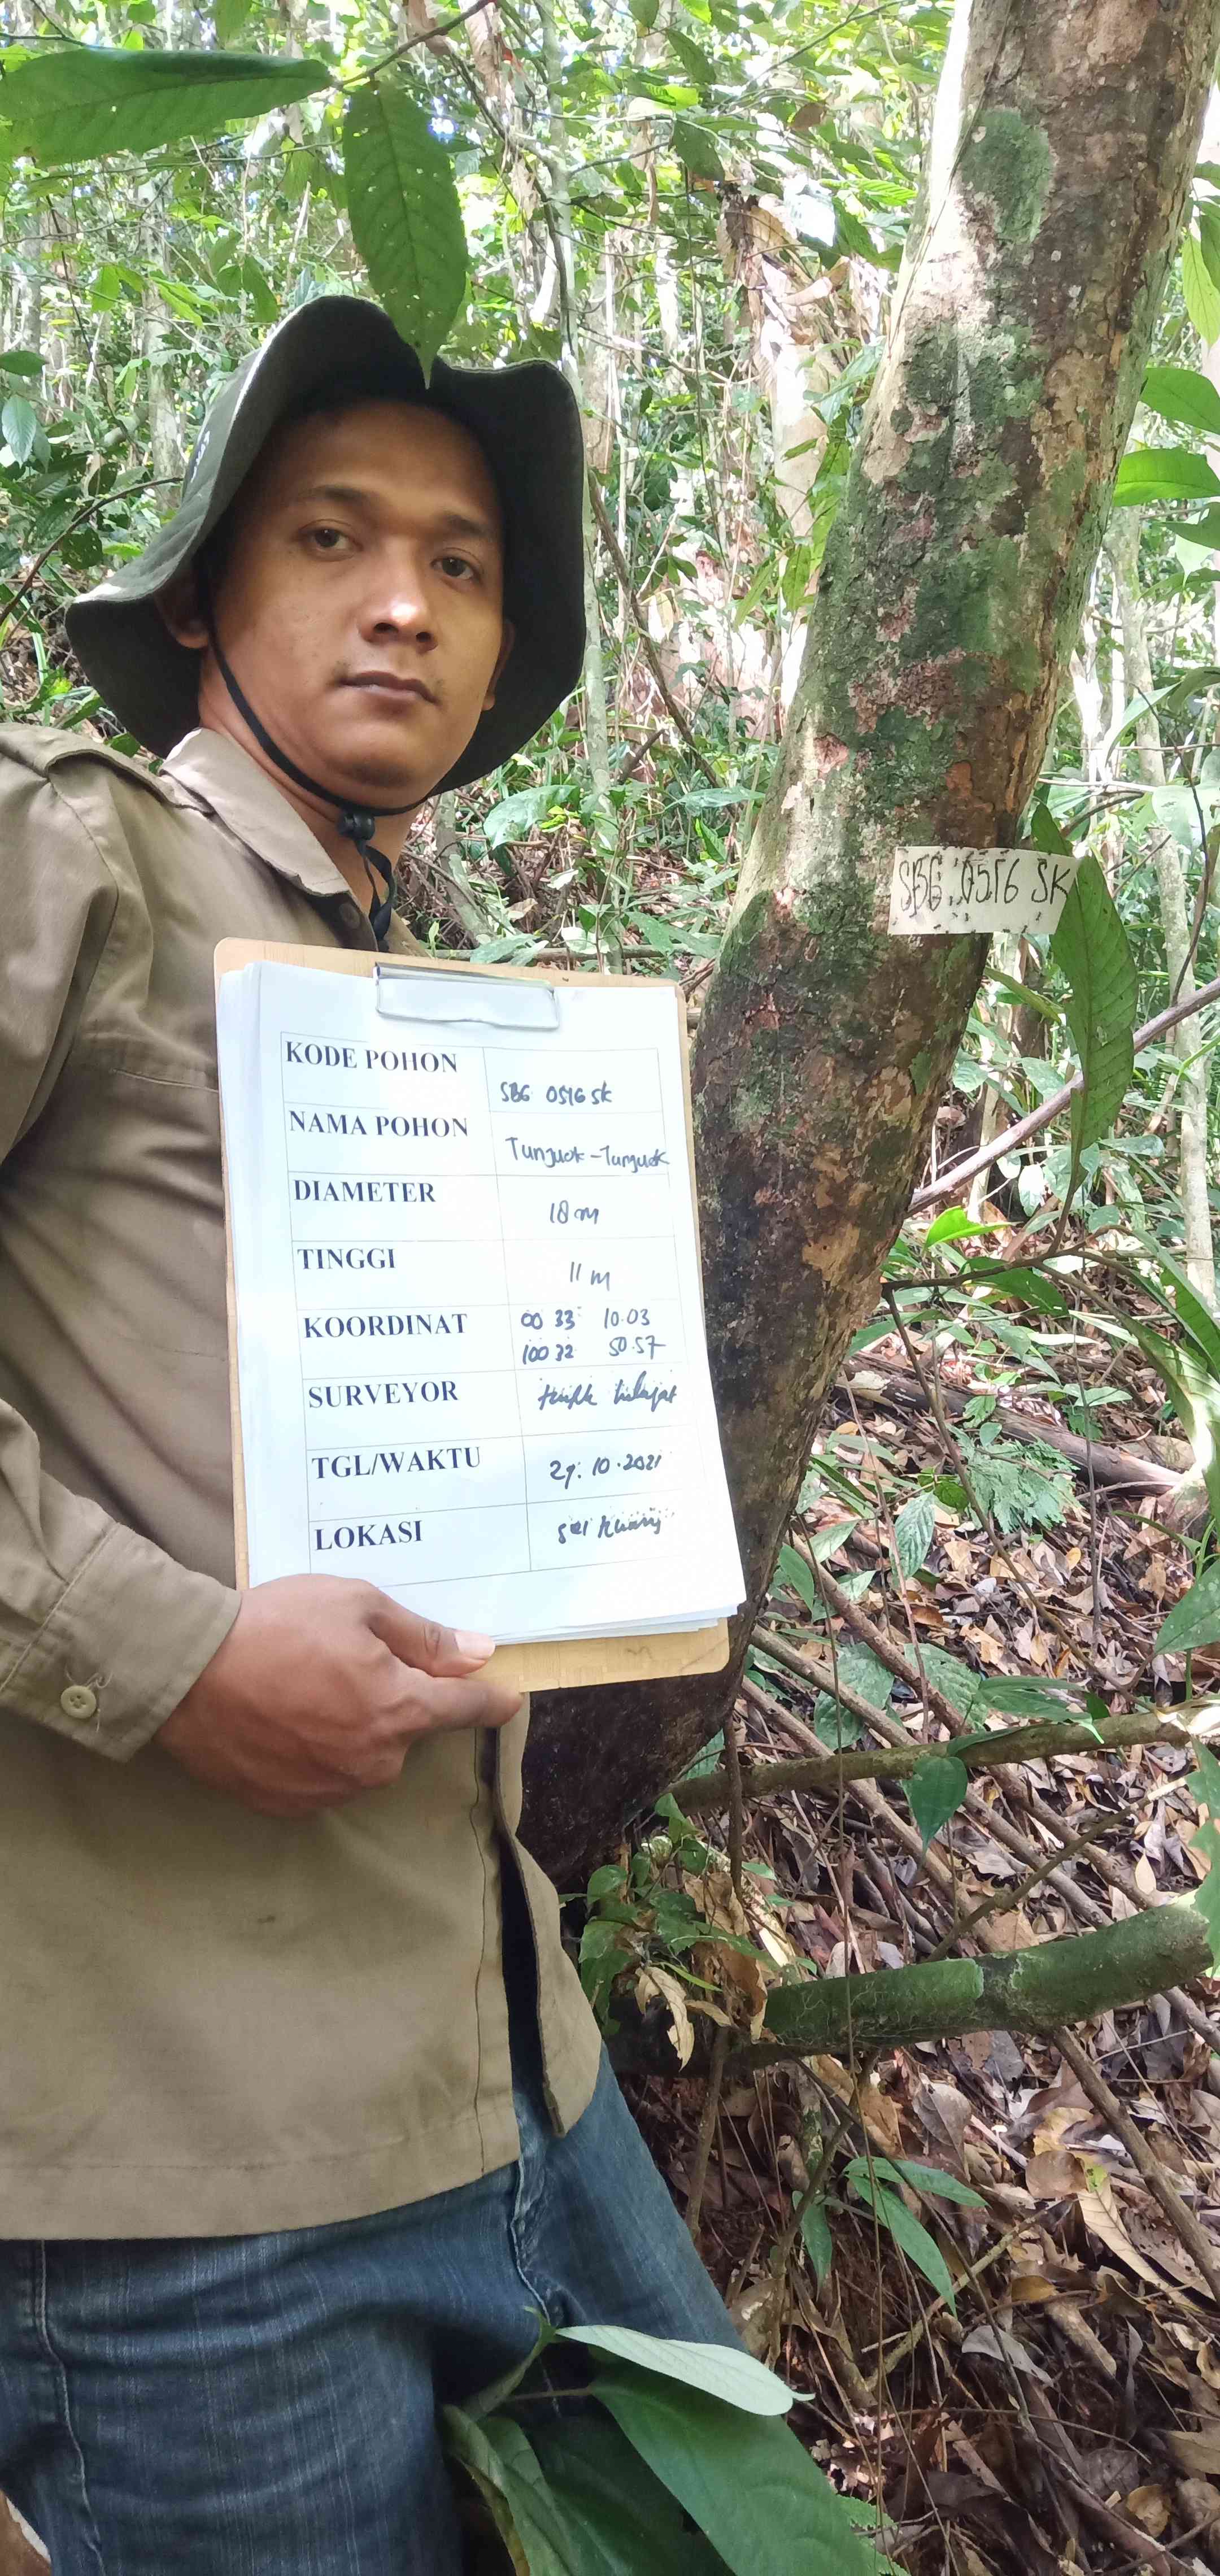 SBG 0516 SK
KODE POHON SBG 0516 SK
NAMA POHON Tunjuok-Tunjuok
DIAMETER 18 cm
TINGGI 11 m
KOORDINAT 00 33 10.03
100 32 50.57
SURVEYOR
TGL/WAKTU 29.10.2021
LOKASI